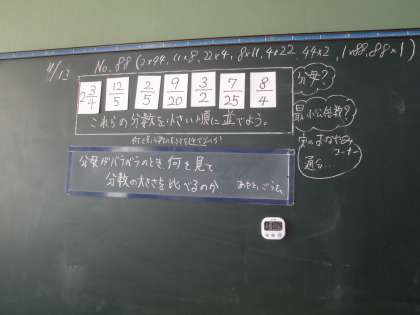 4/13 No. 88 (2×44, 11×8, 22×4, 8×11, 4×22, 44×2, 1×88, 88×1)
2 3/4 12/5 2/5 9/20 3/2 7/25 8/4
分母?
これらの分数を小さい順に並てよう。
最小公倍数?
コーナー
通分…
分母がバラバラのとき、何を見て
分数の大きさを比べるのか